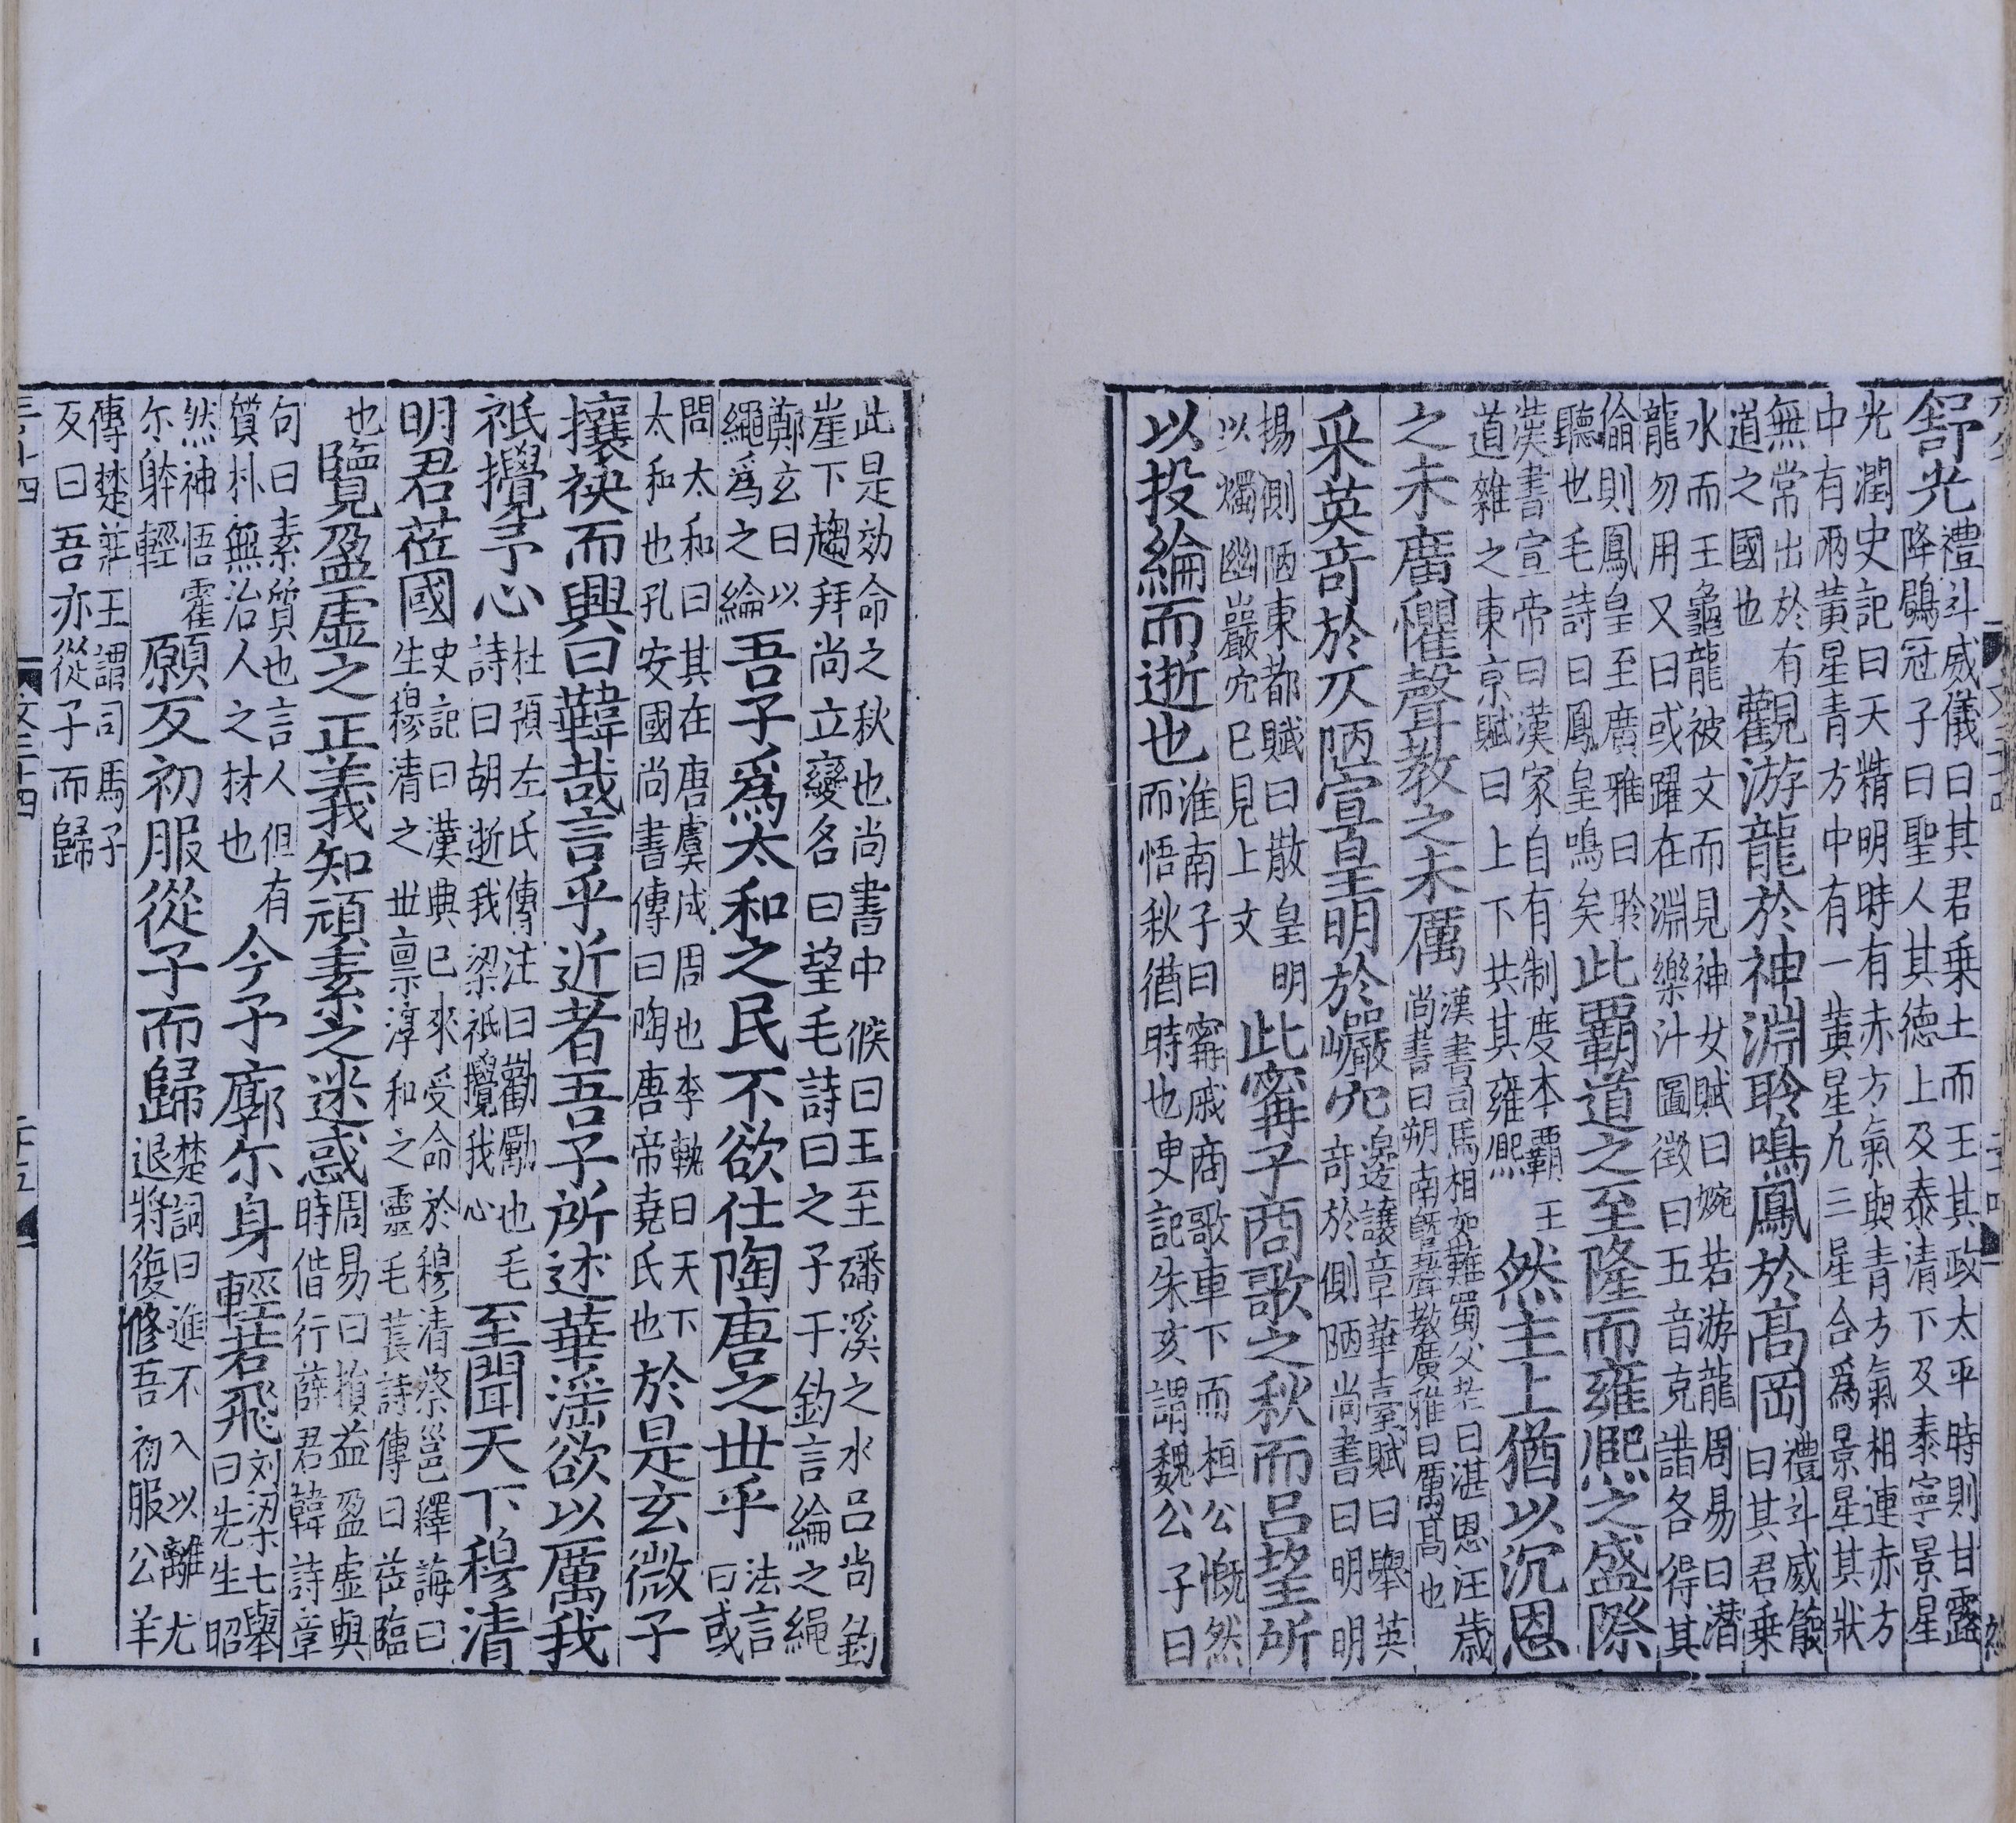 舒光禮斗威儀曰其君乗土而王其政太平時則甘露
降鶡冠子曰聖人其德上及泰清下及泰寧景星
光潤史記曰天精明時有赤方氣與青方氣相連赤方
中有兩黃星青方中有一黃星凡三星合爲景星其狀
無常出於有
道之國也觀游龍於神淵聆鳴鳳於高岡禮斗威儀
曰其君乗
水而王龜龍被文而見神女賦曰婉若游龍周易曰潛
龍勿用又曰或躍在淵樂汁圖徵曰五音克諧各得其
倫則鳳皇至廣雅曰聆
聽也毛詩曰鳳皇鳴矣此霸道之至隆而雍熙之盛際
漢書宣帝曰漢家自有制度本霸王
道雜之東京賦曰上下共其雍熙然主上猶以沉恩
之未廣懼聲教之未厲漢書司馬相如難蜀父老曰湛恩汪歲
尚書曰朔南曁聲教廣雅曰厲高也
采英竒於仄陋宣皇明於巖穴邊讓章華臺賦曰舉英
竒於側陋尚書曰明明
揚側陋東都賦曰散皇明
以燭幽巖穴巳見上文此甯子商歌之秋而呂望所
以投綸而逝也淮南子曰甯戚商歌車下而桓公慨然
而悟秋猶時也史記朱亥謂魏公子曰
此是効命之秋也尚書中候曰王至磻溪之水呂尚釣
崖下趨拜尚立變名曰望毛詩曰之子于釣言綸之繩
鄭玄曰以
繩爲之綸吾子爲太和之民不欲仕陶唐之世乎法言
曰或
問太和曰其在唐虞成周也李軌曰天下
太和也孔安國尚書傳曰陶唐帝堯氏也於是玄微子
攘袂而興曰韡哉言乎近者吾子所述華滛欲以厲我
祇攪予心杜預左氏傳注曰勸勵也毛
詩曰胡逝我梁祇攪我心至聞天下穆清
明君莅國史記曰漢典巳來受命於穆清蔡邕釋誨曰
生穆清之世禀淳和之靈毛萇詩傳曰莅臨
也覽盈虛之正義知頑素之迷惑周易曰損益盈虛與
時偕行薛君韓詩章
句曰素質也言人但有
質朴無治人之材也今予廓尓身輕若飛劉梁七舉
曰先生昭
然神悟霍
尓躰輕願反初服從子而歸楚詞曰進不入以離尤
退將復修吾初服公羊
傳楚莊王謂司馬子
反曰吾亦從子而歸